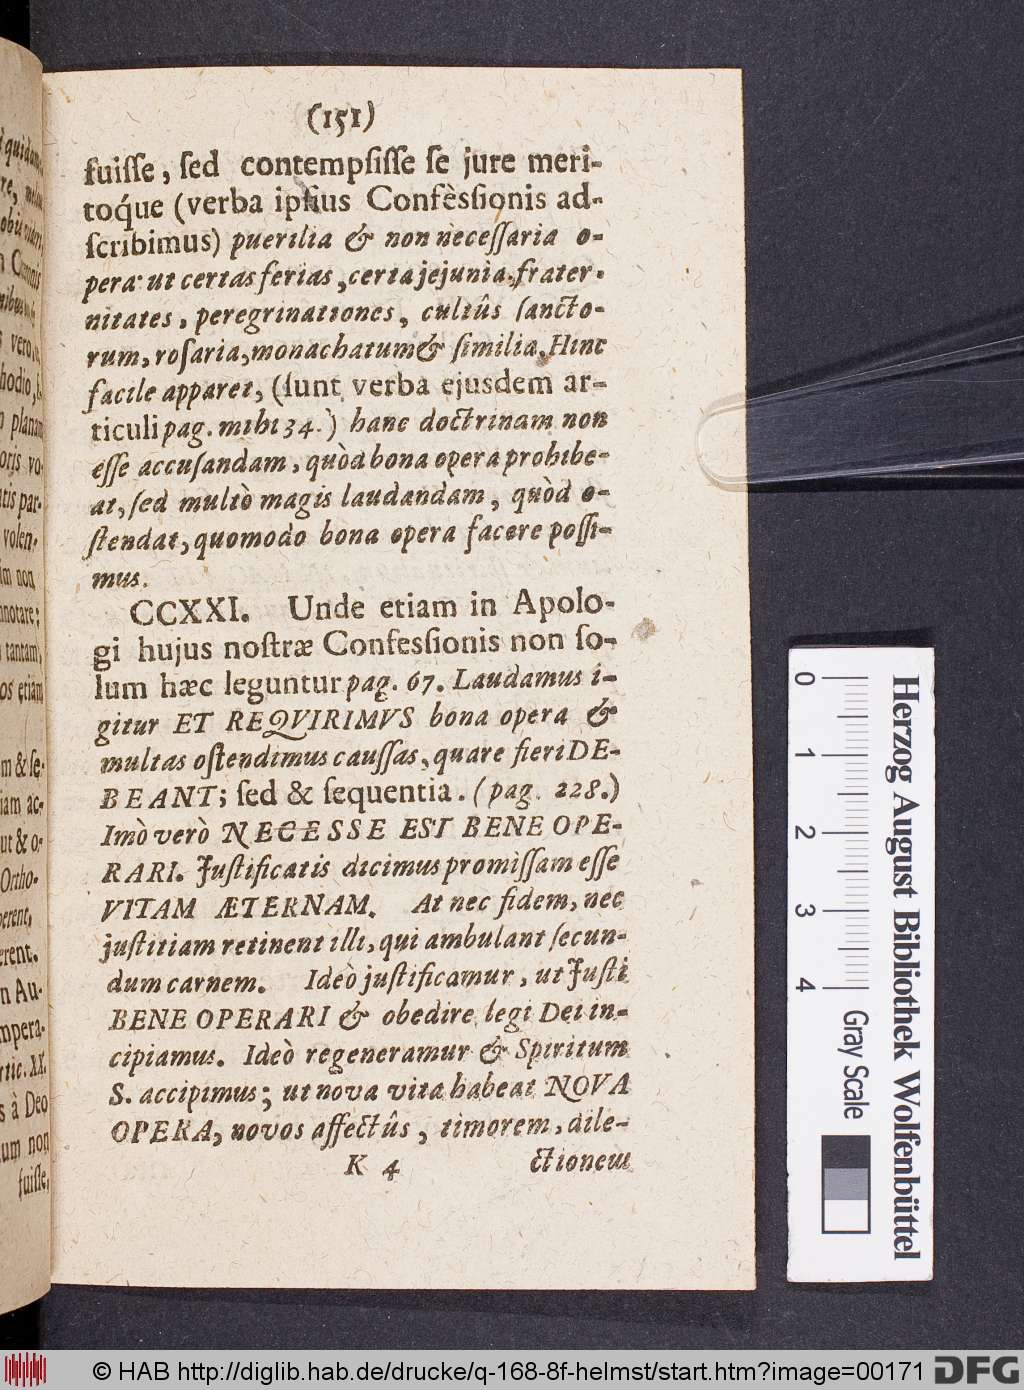 (151)
fuisse, sed contempsisse se jure meri-
toq́ue (verba ipsius Confèssionis ad-
scribimus) puerilia & non necessaria o-
pera: ut certas ferias, certa jejunia, frater-
nitates, peregrinationes, cultûs sancto-
rum, rosaria, monachatum & similia. Hinc
facile apparet, (sunt verba ejusdem ar-
ticuli pag. mihi 34.) hanc doctrinam non
esse accusandam, quòd bona opera prohibe-
at, sed multò magis laudandam, quòd o-
stendat, quomodo bona opera facere possi-
mus.
CCXXI. Unde etiam in Apolo-
gi hujus nostræ Confessionis non so-
lum hæc leguntur pag. 67. Laudamus i-
gitur ET REQVIRIMVS bona opera &
multas ostendimus caussas, quare fieri DE-
BEANT; sed & sequentia. (pag. 228.)
Imò verò NECESSE EST BENE OPE-
RARI. Justificatis dicimus promissam esse
VITAM ÆTERNAM. At nec fidem, nec
justitiam retinent illi, qui ambulant secun-
dum carnem. Ideò justificamur, ut Justi
BENE OPERARI & obedire legi Dei in-
cipiamus. Ideò regeneramur & Spiritum
S. accipimus; ut nova vita habeat NOVA
OPERA, novos affectûs, timorem, dile-
K 4 ctionem
quidam
vero,
hodio,
planam
oris vo-
tis par-
volen-
im non
nnotare;
tantam,
os etiam
m & se-
iam ac-
ut & o-
Ortho-
erent,
erent.
n Au-
mpera-
rtic. XX.
s à Deo
um non
fuisse,
0 1 2 3 4
Gray Scale
Herzog August Bibliothek Wolfenbüttel
© HAB http://diglib.hab.de/drucke/q-168-8f-helmst/start.htm?image=00171
DFG